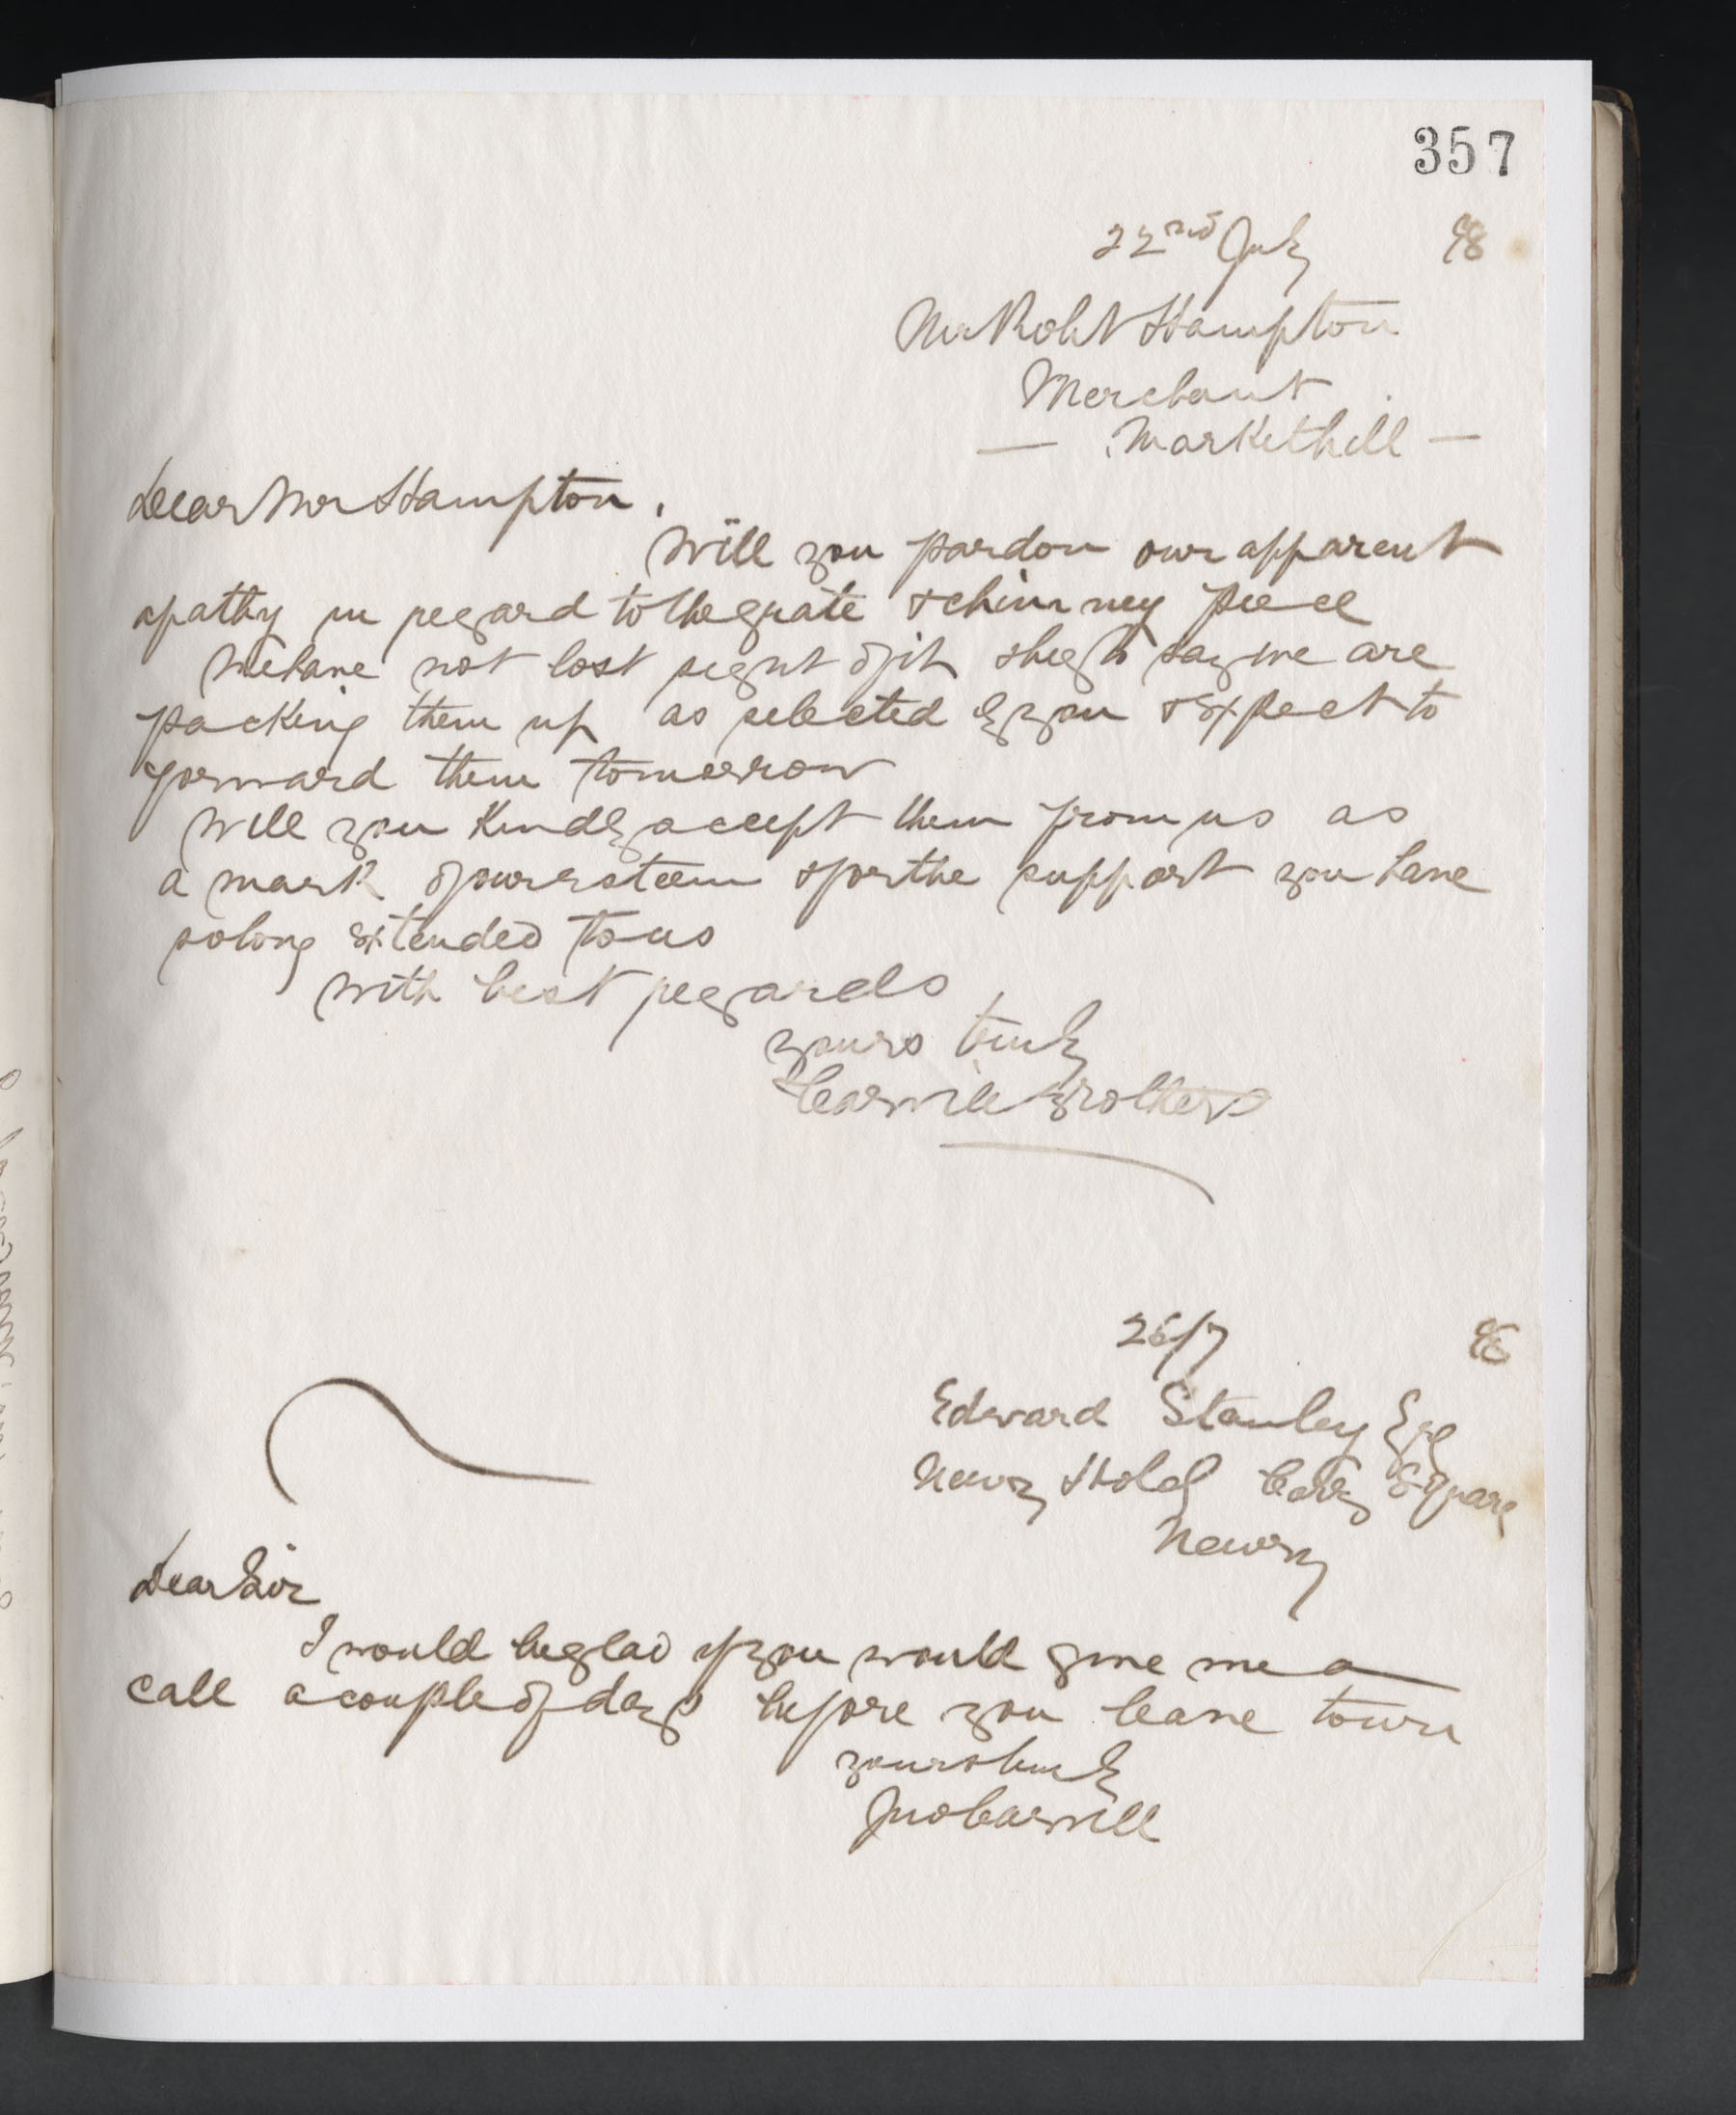 357
22nd July 98
Mr Robt Hampton
Merchant
— Markethill —
Dear Mr Hampton,
Will you pardon our apparent
apathy in regard to the grate & chimney piece
We have not lost sight of it & beg to say we are
packing them up as selected by you & expect to
forward them tomorrow
Will you kindly accept them from us as
a mark of our esteem & for the support you have
so long extended to us
With best regards
yours truly
Carvill Brothers
26/7 98
Edward Stanley Esq
Newry Hotel Corry Square
Newry
Dear Sir
I would be glad if you would give me a
call a couple of days before you leave town
yours truly
Jno Carvill